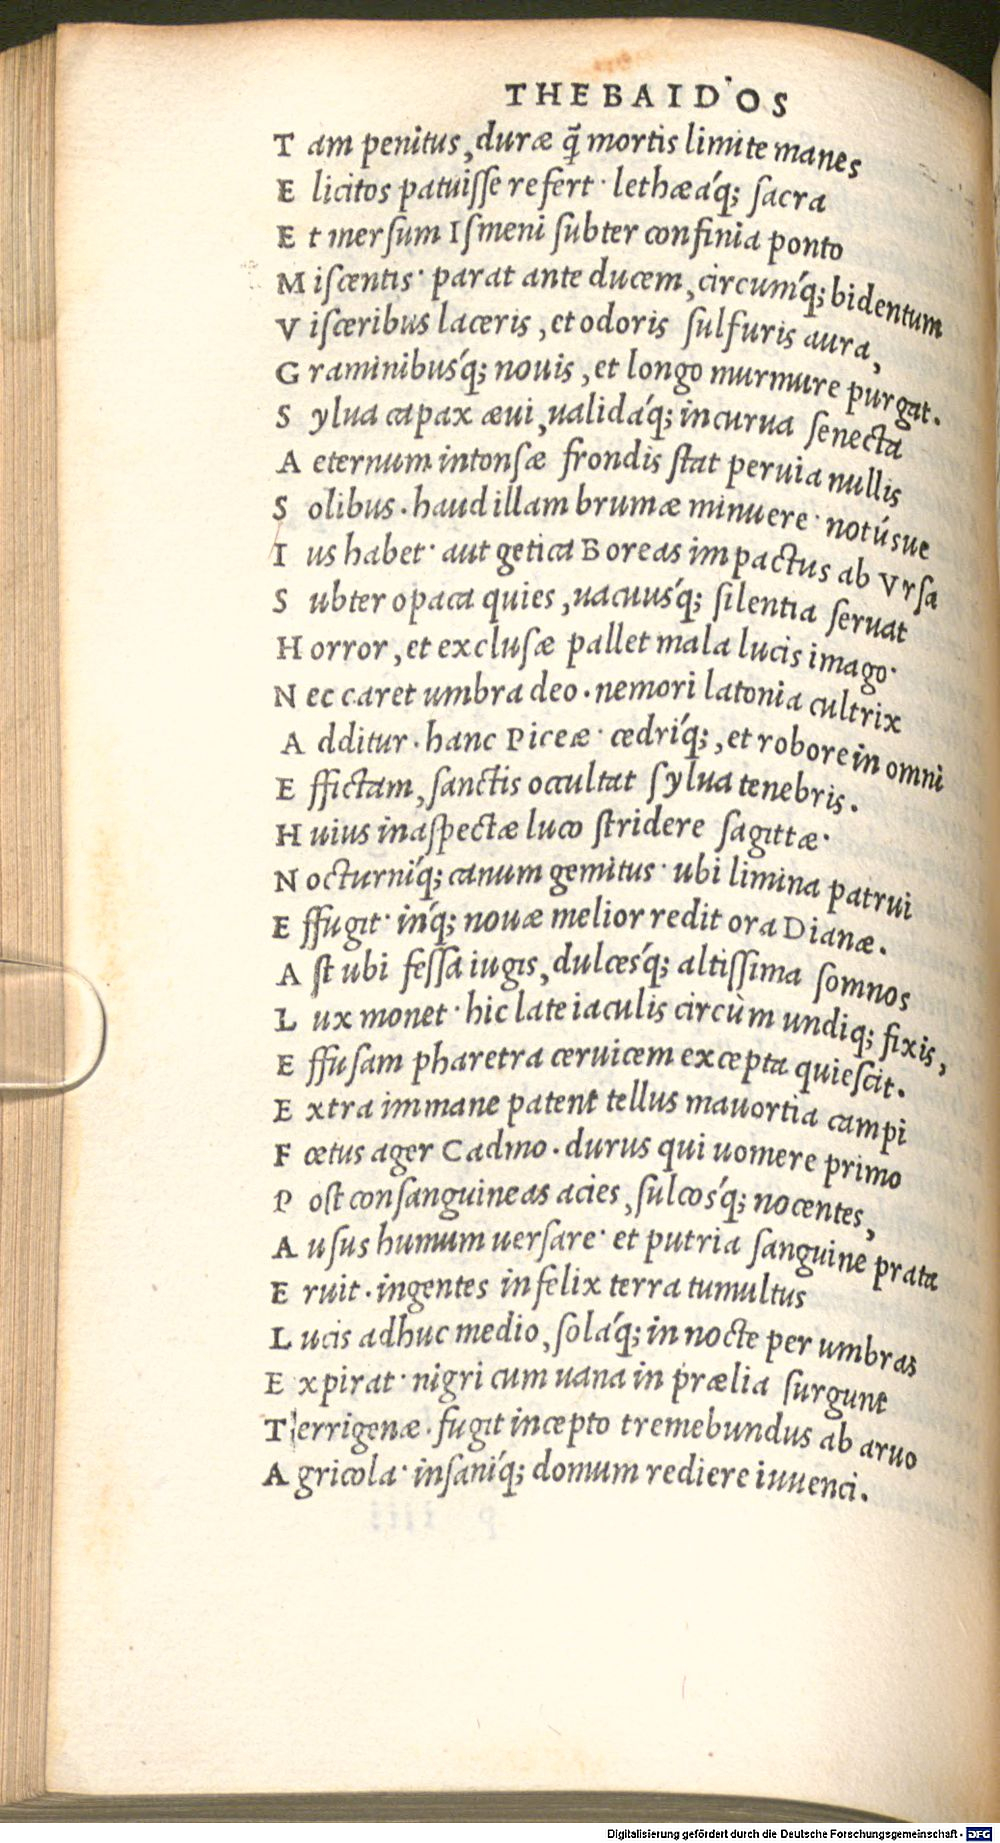 THEBAID'OS
T am penitus, duræ q̃ mortis limite manes
E licitos patuisse refert· lethææáq; sacra
E t mersum Ismeni subter confinia ponto
M iscentis· parat ante ducem, circumq́; bidentum
V isceribus laceris, et odoris sulfuris aura,
G raminibusq́; nouis, et longo murmure purgat.
S ylua capax æui, ualidáq; incurua senecta
A eternum intonsæ frondis stat peruia nullis
S olibus. haud illam brumæ minuere· notúsue
I us habet· aut getica Boreas impactus ab Vrsa
S ubter opaca quies, uacuusq́; silentia seruat
H orror, et exclusæ pallet mala lucis imago·
N ec caret umbra deo. nemori latonia cultrix
A dditur. hanc Piceæ· cedriq́;, et robore in omni
E ffictam, sanctis occultat sylua tenebris.
H uius inaspectæ luco stridere sagittæ·
N octurniq́; canum gemitus· ubi limina patrui
E ffugit· inq́; nouæ melior redit ora Dianæ.
A st ubi fessa iugis, dulcesq́; altissima somnos
L ux monet· hic late iaculis circùm undiq; fixis,
E ffusam pharetra ceruicem excepta quiescit.
E xtra immane patent tellus mauortia campi
F œtus ager Cadmo. durus qui uomere primo
P ost consanguineas acies, sulcosq́; nocentes,
A usus humum uersare· et putria sanguine prata
E ruit. ingentes infelix terra tumultus
L ucis adhuc medio, soláq; in nocte per umbras
E xpirat· nigri cum uana in prælia surgunt
T errigenæ. fugit incepto tremebundus ab aruo
A gricola· insaniq́; domum rediere iuuenci.
Digitalisierung gefördert durch die Deutsche Forschungsgemeinschaft - DFG